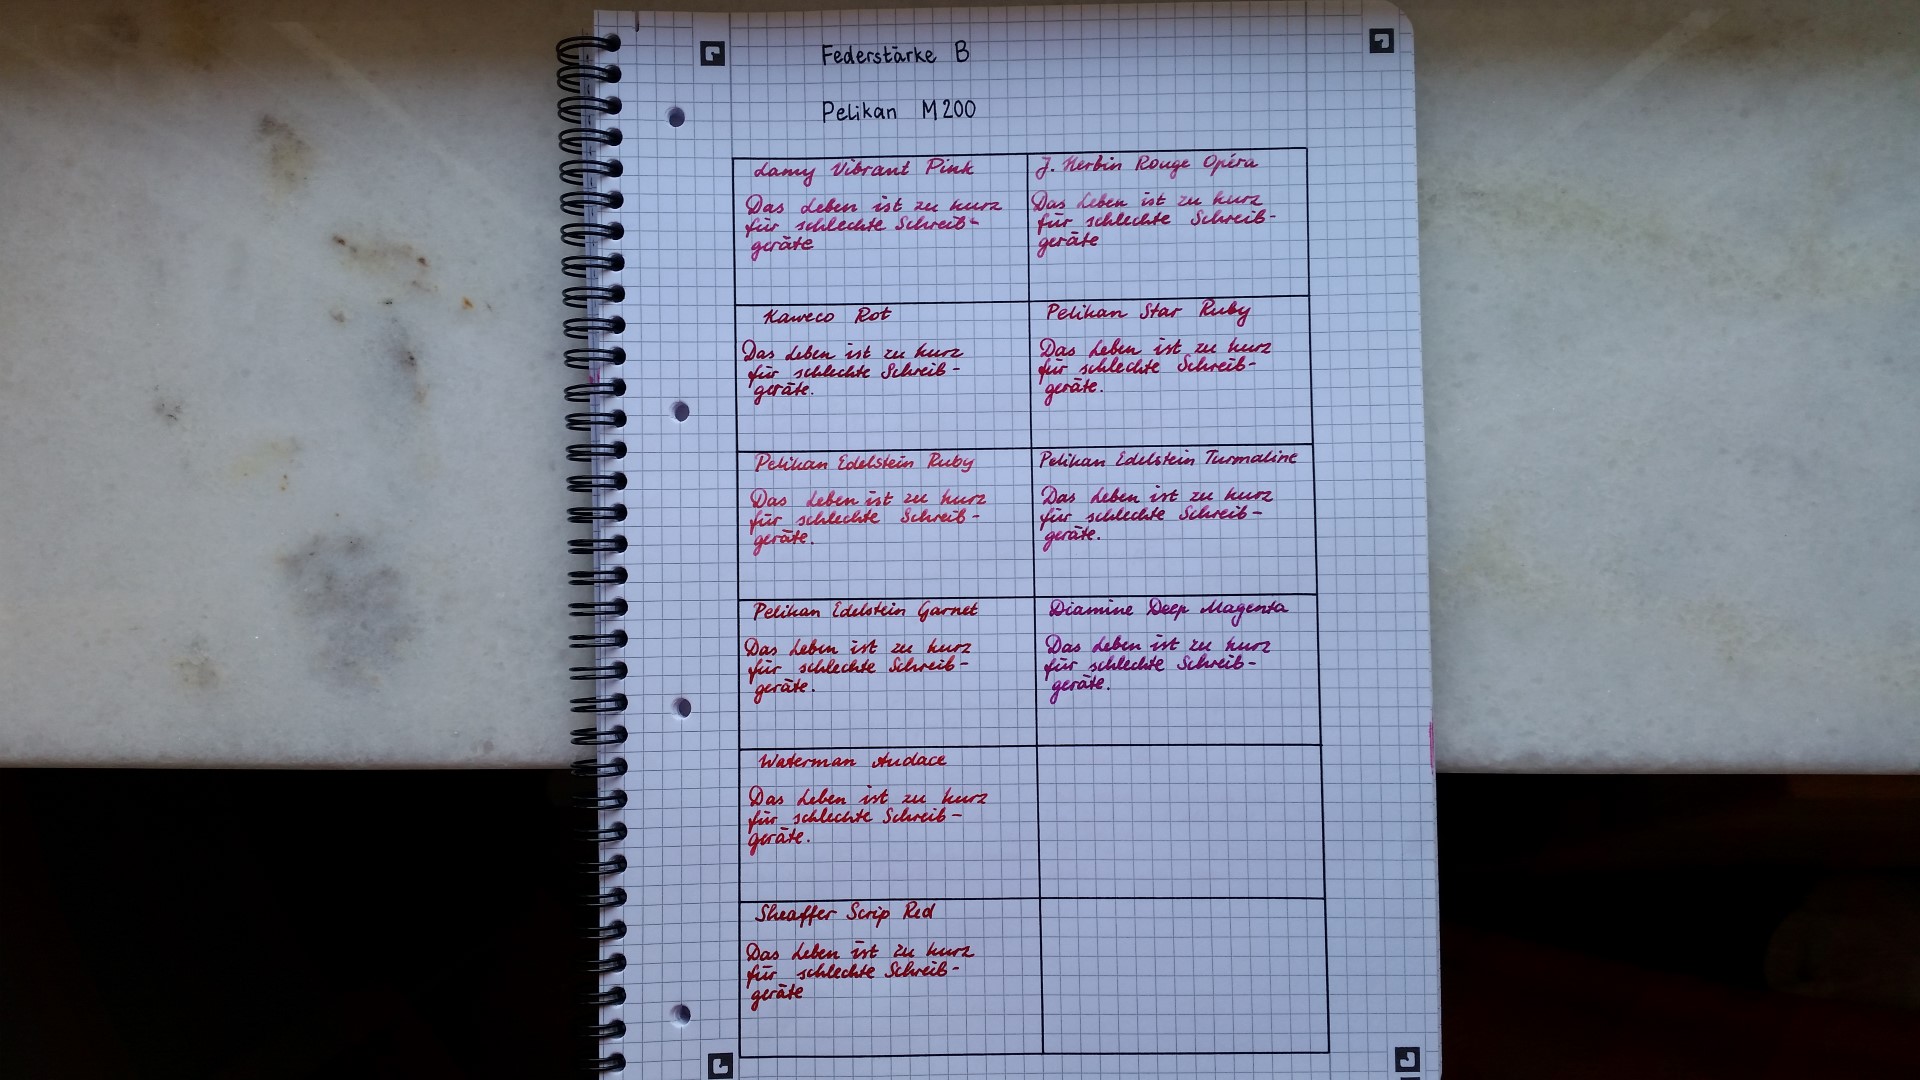 Federstärke B
Pelikan M200
Lamy Vibrant Pink
Das Leben ist zu kurz
für schlechte Schreib-
geräte
J. Herbin Rouge Opéra
Das Leben ist zu kurz
für schlechte Schreib-
geräte
Kaweco Rot
Das Leben ist zu kurz
für schlechte Schreib-
geräte.
Pelikan Star Ruby
Das Leben ist zu kurz
für schlechte Schreib-
geräte.
Pelikan Edelstein Ruby
Das Leben ist zu kurz
für schlechte Schreib-
geräte.
Pelikan Edelstein Turmaline
Das Leben ist zu kurz
für schlechte Schreib-
geräte.
Pelikan Edelstein Garnet
Das Leben ist zu kurz
für schlechte Schreib-
geräte.
Diamine Deep Magenta
Das Leben ist zu kurz
für schlechte Schreib-
geräte.
Waterman Audace
Das Leben ist zu kurz
für schlechte Schreib-
geräte.
Sheaffer Scrip Red
Das Leben ist zu kurz
für schlechte Schreib-
geräte